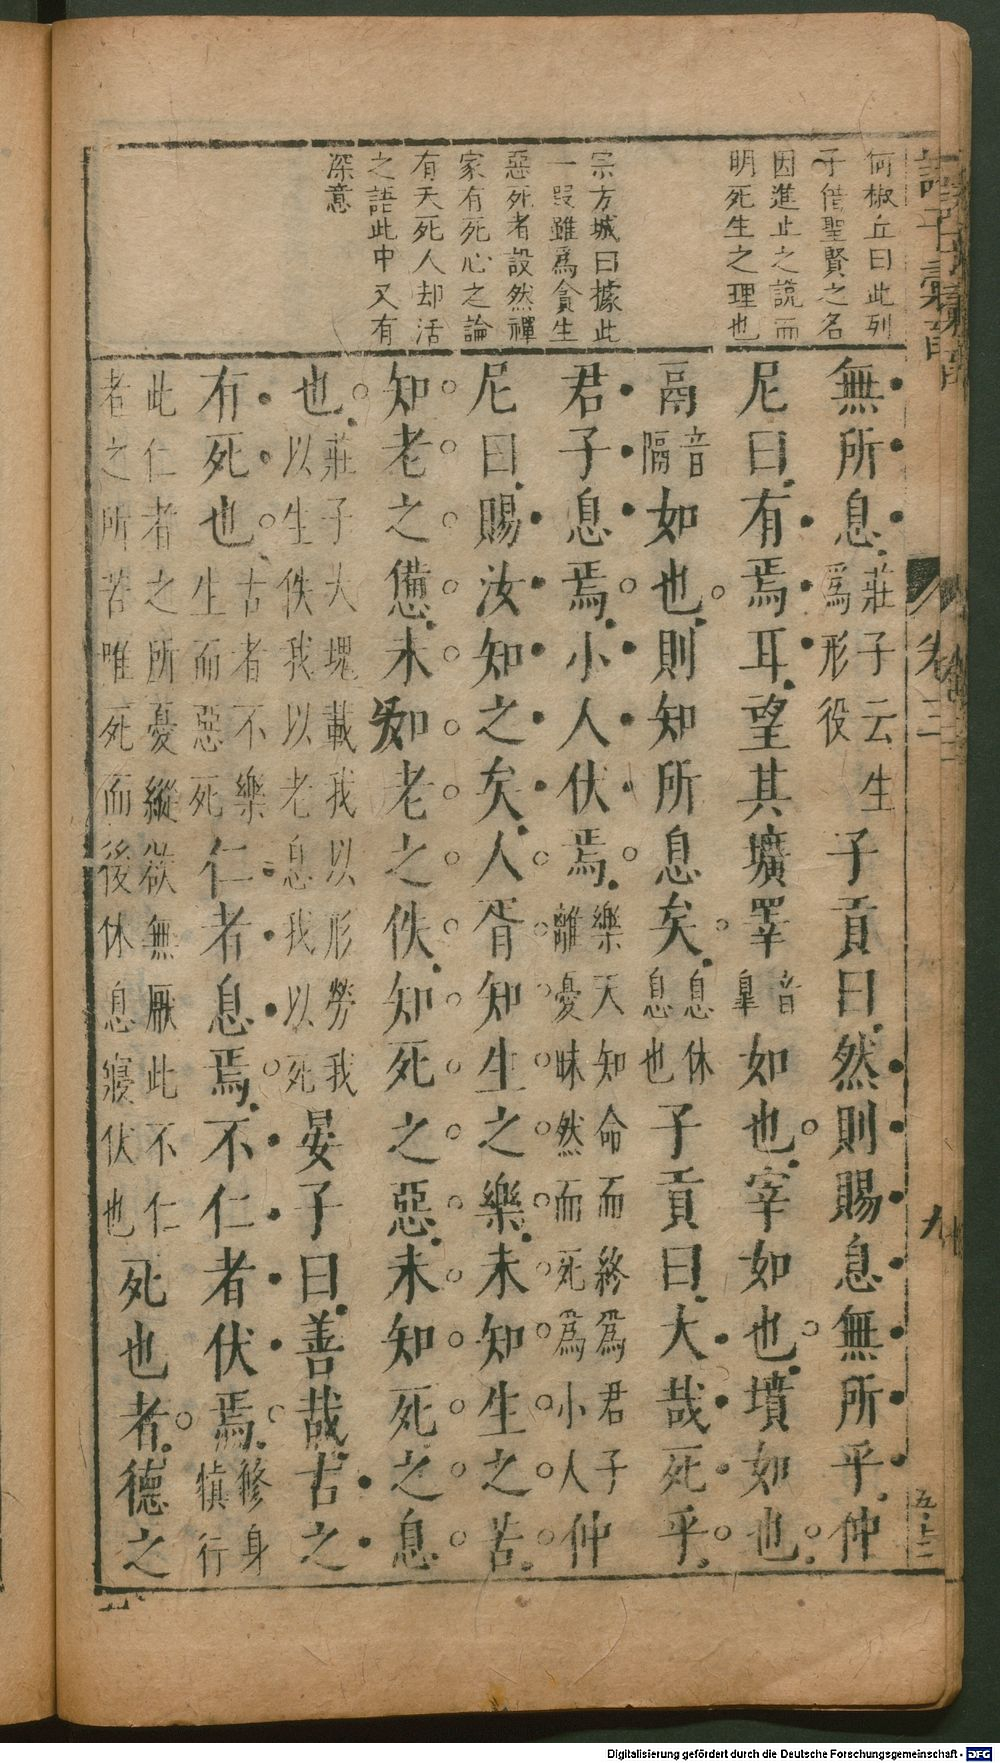 何椒丘曰此列
子借聖賢之名
因進止之説而
明死生之理也
宗方城曰據此
一叚雖爲貪生
惡死者設然禪
家有死心之論
有大死人却活
之語此中又有
深意
無所息莊子云生爲形役子貢曰然則賜息無所乎仲
尼曰有焉耳望其壙睪音皐如也宰如也墳如也
鬲音隔如也則知所息矣息休息也子貢曰大哉死乎
君子息焉小人伏焉樂天知命而終爲君子離憂昧然而死爲小人仲
尼曰賜汝知之矣人胥知生之樂未知生之苦
知老之憊未知老之佚知死之惡未知死之息
也莊子大塊載我以形勞我以生佚我以老息我以死晏子曰善哉古之
有死也古者不樂生而惡死仁者息焉不仁者伏焉修身慎行
此仁者之所憂縱欲無厭此不仁者之所苦唯死而後休息寢伏也死也者德之
卷三
九
Digitalisierung gefördert durch die Deutsche Forschungsgemeinschaft - DFG